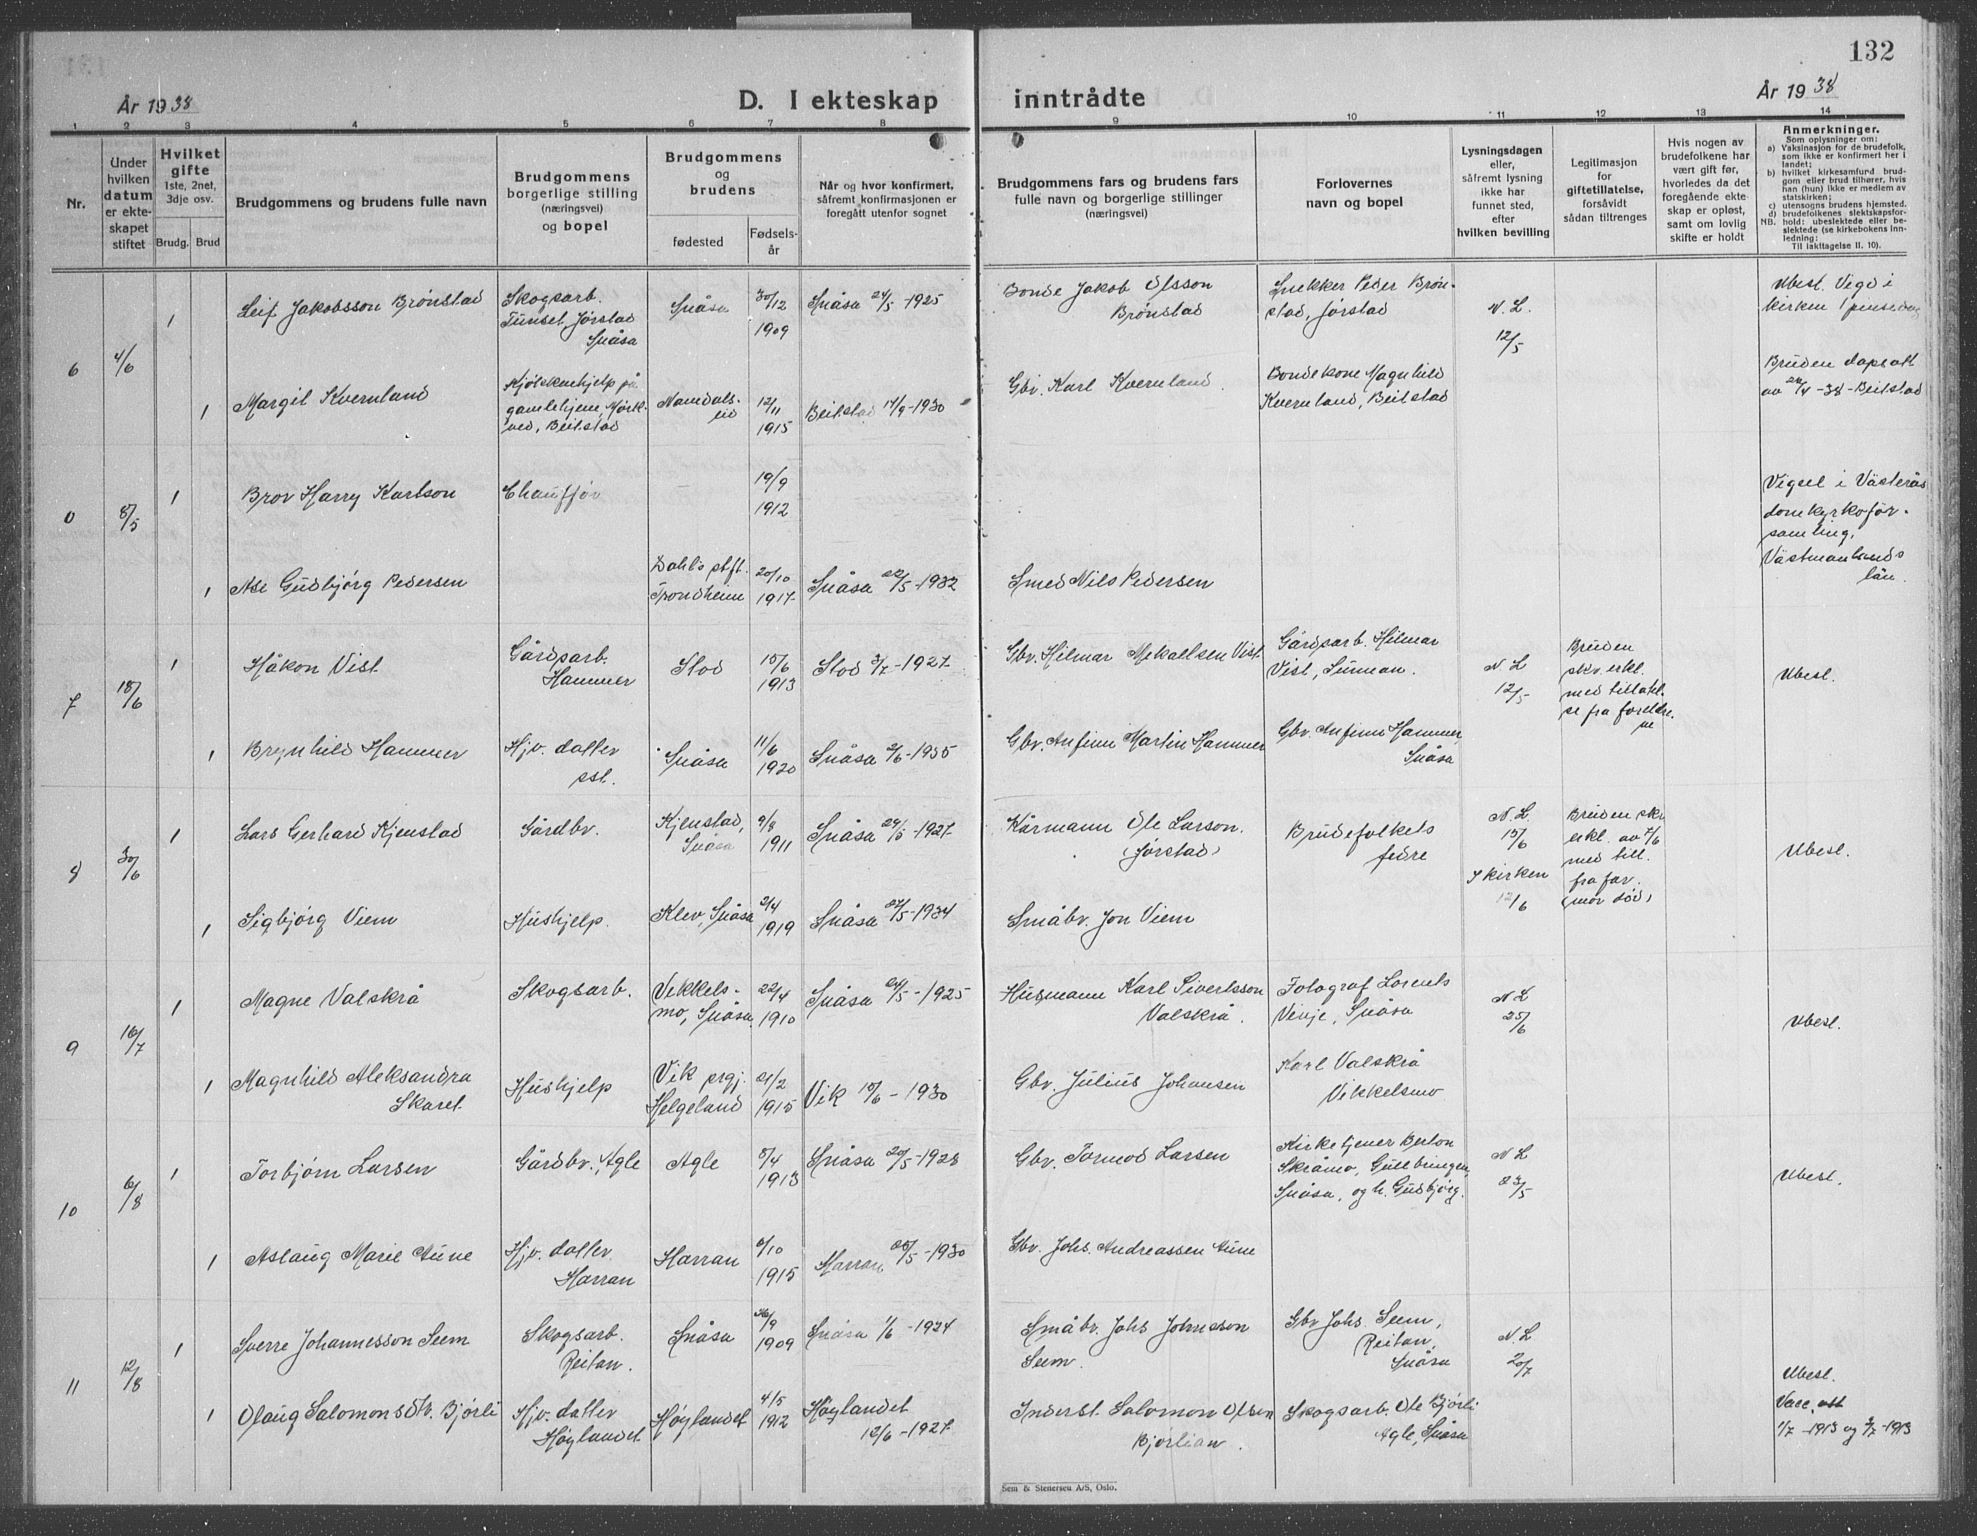 132
År 1938
D. I ekteskap inntrådte
År 1938
1 2 3 4 5 6 7 8 9 10 11 12 13 14
Nr.
Under hvilken datum er ekteskapet stiftet
Hvilket gifte
1ste, 2net, 3dje osv.
Brudg. Brud
Brudgommens og brudens fulle navn
Brudgommens borgerlige stilling (næringsvei) og bopel
Brudgommens og brudens
fødested
Fødselsår
Når og hvor konfirmert, såfremt konfirmasjonen er foregått utenfor sognet
Brudgommens fars og brudens fars fulle navn og borgerlige stillinger (næringsvei)
Forlovernes navn og bopel
Lysningsdagen eller, såfremt lysning ikke har funnet sted, efter hvilken bevilling
Legitimasjon for giftetillatelse, forsåvidt sådan tiltrenges
Hvis nogen av brudefolkene har vært gift før, hvorledes da det foregående ekteskap er opløst, samt om lovlig skifte er holdt
Anmerkninger.
Som oplysninger om:
a) Vaksinasjon for de brudefolk, som ikke er konfirmert her i landet;
b) hvilket kirkesamfund brudgom eller brud tilhører, hvis han (hun) ikke er medlem av statskirken;
c) utensogns brudens hjemsted.
d) brudefolkenes slektskapsforhold: ubeslektede eller beslektede (se kirkebokens innledning:
NB. Til iakttagelse II. 10).
6
4/6
1
Leif Jakobsson Brønstad
Skogsarb.
Tunset, Jørstad
Snåsa
Snåsa
30/12
1909
Snåsa 24/5-1925
Bonde Jakob Olsson
Brønstad
Snekker Peder Brøn-
stad, Jørstad
N. L.
12/5
Ubesl. Vigd i
kirken 1 pinsedag
1
Margit Kvernland
Kjøkkenhjelp på
gamlehjem, Mørk-
ved, Beitstad
Namdals-
eid
12/11
1915
Beitstad 14/9-1930
Gbr. Karl Kvernland.
Bondekone Magnhild
Kvernland, Beitstad
Bruden dapsatt
av 22/4-38-Beitstad
0
8/5
1
Brov Harry Karlson
Chauffør
19/9
1912
Vigsel i Västerås
domkyrkoför-
samling,
Västmanlands
län.
1
Åse Gudbjørg Pedersen
Dahls stft.
Trondheim
20/10
1917
Snåsa 22/5-1932
Smed Nils Pedersen
7
18/6
1
Håkon Vist
Gårdsarb.
Hammer
Stod
15/6
1913
Stod 3/7-1927
Gbr. Hilmar Mekalsen Vist
Gårdsarb. Hilmar
Vist, Sunnan.
N. L
12/5
Bruden
skr. erkl.
med tillatel-
se fra foreldre-
ne
Ubesl.
1
Brynhild Hammer
Hjv. datter
sst.
Snåsa
11/6
1920
Snåsa 2/6-1935
Gbr. Anfinn Martin Hammer
Gbr. Anfinn Hammer,
Snåsa
8
30/6
1
Lars Gerhard Kjenstad
Gårdbr.
Kjenstad,
Snåsa
9/8
1911
Snåsa 29/5-1927
Kårmann Ole Larson.
(Jørstad)
Brudefolkets
fedre
N. L.
15/6
I kirken
12/6
Bruden skr
erkl. av 7/6
med till.
fra far.
(mor død)
Ubesl.
1
Sigbjørg Viem
Hushjelp.
Klev, Snåsa
2/4
1919
Snåsa 27/5-1934
Småbr. Jon Viem
9
16/7
1
Magne Valskrå
Skogsarb.
Vekkels-
mo, Snåsa
22/4
1910
Snåsa 24/5-1925
Husmann Karl Sivertsson
Valskrå.
Fotograf Lorents
Venje, Snåsa
N. L
25/6
Ubesl.
1
Magnhild Aleksandra
Skaret
Hushjelp
Vik prgj.
Helgeland
21/2
1915
Vik 15/6-1930
Gbr. Julius Johansen
Karl Valskrå
Vikkelsmo
10
6/8
1
Torbjørn Larsen
Gårdbr., Agle
Agle
5/4
1913
Snåsa 20/5-1928
Gbr. Tormod Larsen
Kirketjener Berton
Skråmo, Gullbringen,
Snåsa, og h. Gudbjørg.
N. L
23/5
Ubesl.
1
Aslaug Marie Aune
Hjv. datter
Harran
Harran
6/10
1915
Harran 25/5-1930
Gbr. Johs. Andreassen Aune
11
12/8
1
Sverre Johannesson Seem
Skogsarb.
Reitan.
Snåsa
26/9
1909
Snåsa 1/6-1924
Småbr. Johs Johnsson
Seem.
Gbr Johs. Seem,
Reitan,
Snåsa
N. L
20/7
Ubesl.
1
Olaug Salomonsdtr. Bjørli
Hjv. datter
Høylandet
Høylandet
4/5
1912
Høylandet
12/6-1927
Inderst Salomon Olsen
Bjørlian.
Skogsarb. Ole Bjørli
Agle, Snåsa
Vacc. att
1/7-1913 og 9/7-1913
Sem & Stenersen A/S, Oslo.